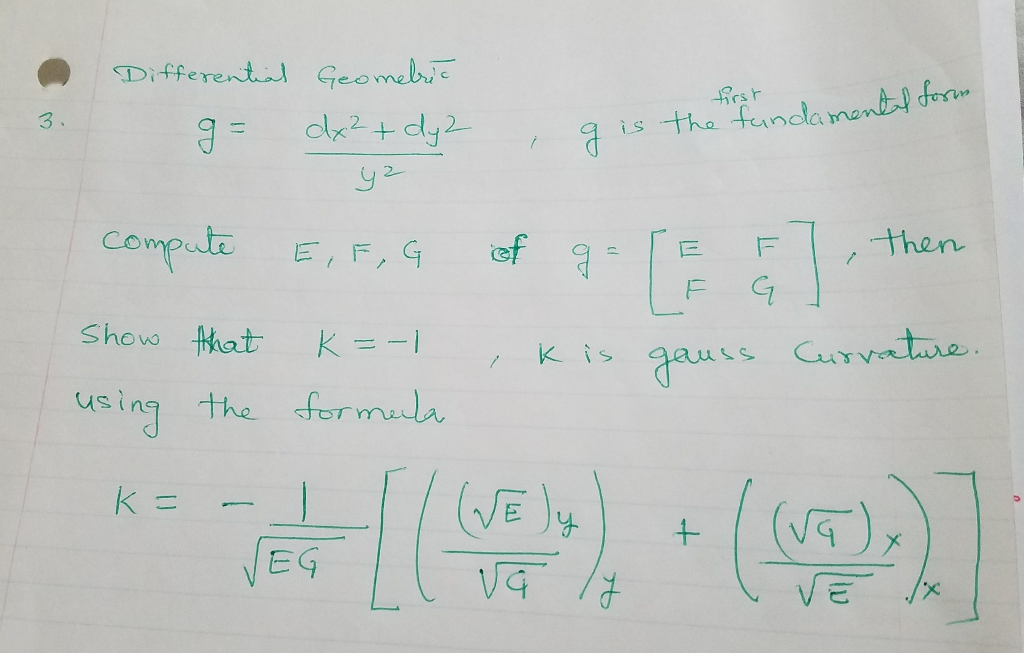 Differential Geometric
3. g = dx² + dy² / y² , g is the first fundamental form
compute E, F, G of g = [E F; F G] , then
Show that K = -1 , K is gauss Curvature.
using the formula
K = - 1/√EG [ ( (√E)y / √G )y + ( (√G)x / √E )x ]